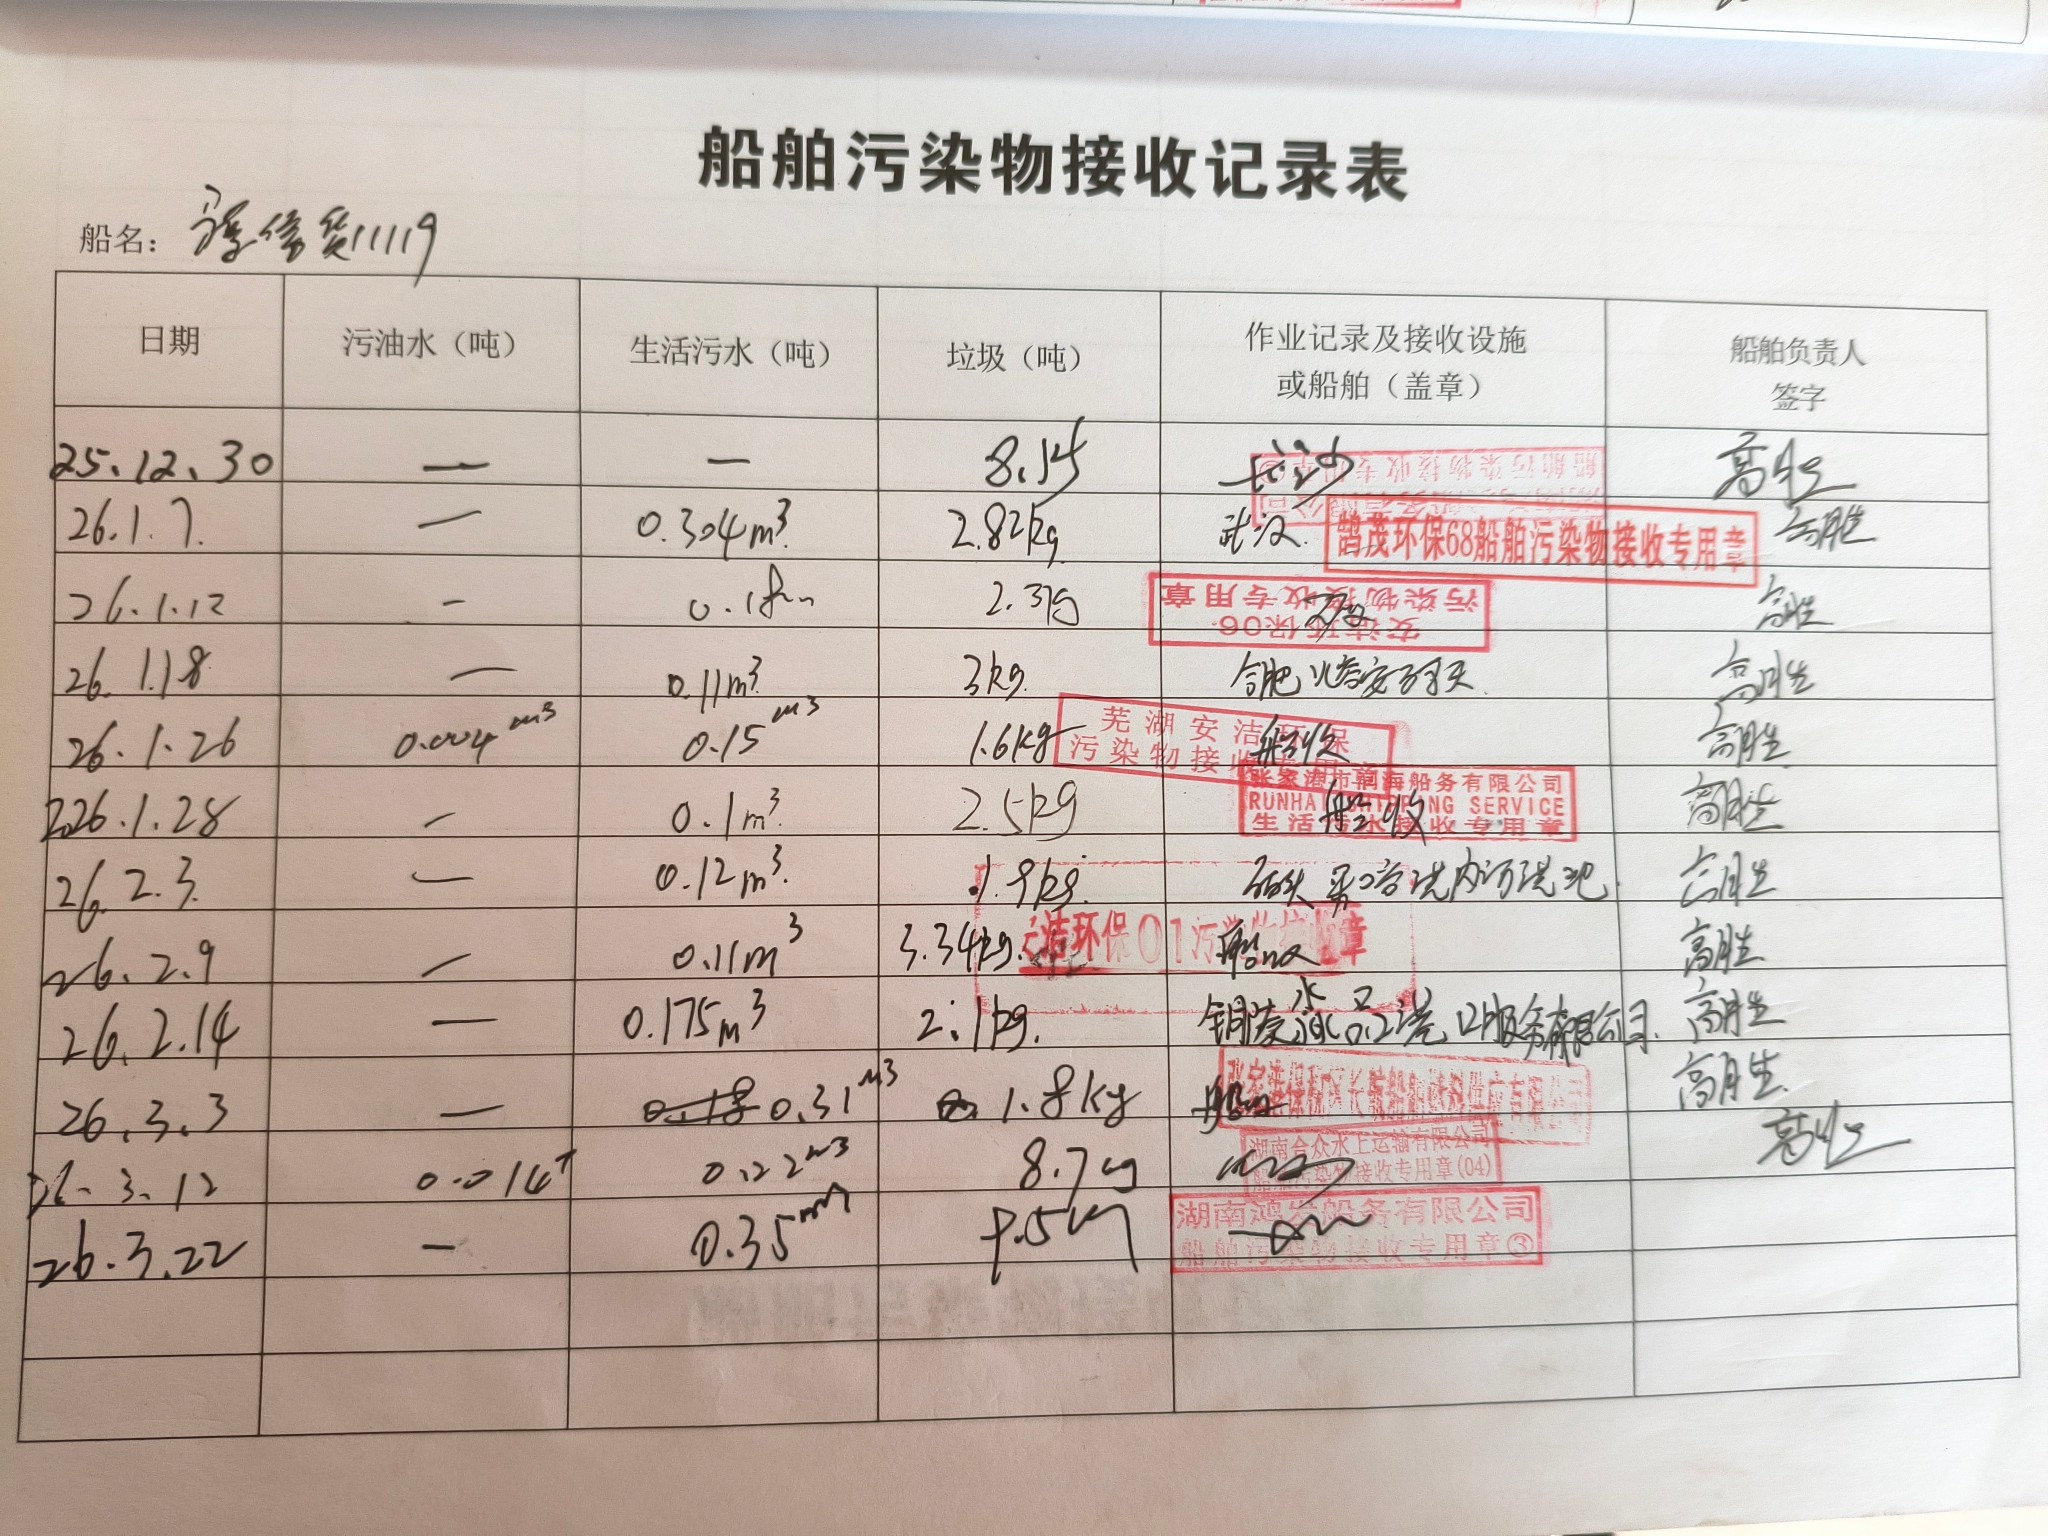 船舶污染物接收记录表
船名： 信货11119
日期 污油水（吨） 生活污水（吨） 垃圾（吨） 作业记录及接收设施或船舶（盖章） 船舶负责人签字
25.12.30 — — 长沙 高胜
26.1.7. — 0.304m³. 2.82kg 武汉. 鹄茂环保68船舶污染物接收专用章 高胜
26.1.12 — 0.18m 安洁环保06 污染物接收专用章 高胜
26.1.18 — 0.11m³. 3kg. 合肥 码头 高胜
26.1.26 0.004m³ 0.15m³ 1.6kg 芜湖安洁环保 污染物接收专用章 船收 高胜
226.1.28 — 0.1m³. 2.5kg 张家港市润海船务有限公司 RUNHAI SHIPPING SERVICE 生活污水接收专用章 船收 高胜
26.2.3. — 0.12m³. 1.9kg. 码头 高胜
26.2.9 — 0.11m³ 3.34kg. 安洁环保01污染物接收章 船收 高胜
26.2.14 — 0.175m³ 2.1kg. 铜陵 港口服务有限公司. 高胜
26.3.3 — 0.18 0.31m³ 1.8kg 船收 高胜
26.3.12 0.014T 0.22m³ 8.7kg 湖南合众水上运输有限公司 船舶污染物接收专用章(04) 高胜
26.3.22 — 0.35m³ 湖南鸿发船务有限公司 船舶污染物接收专用章③